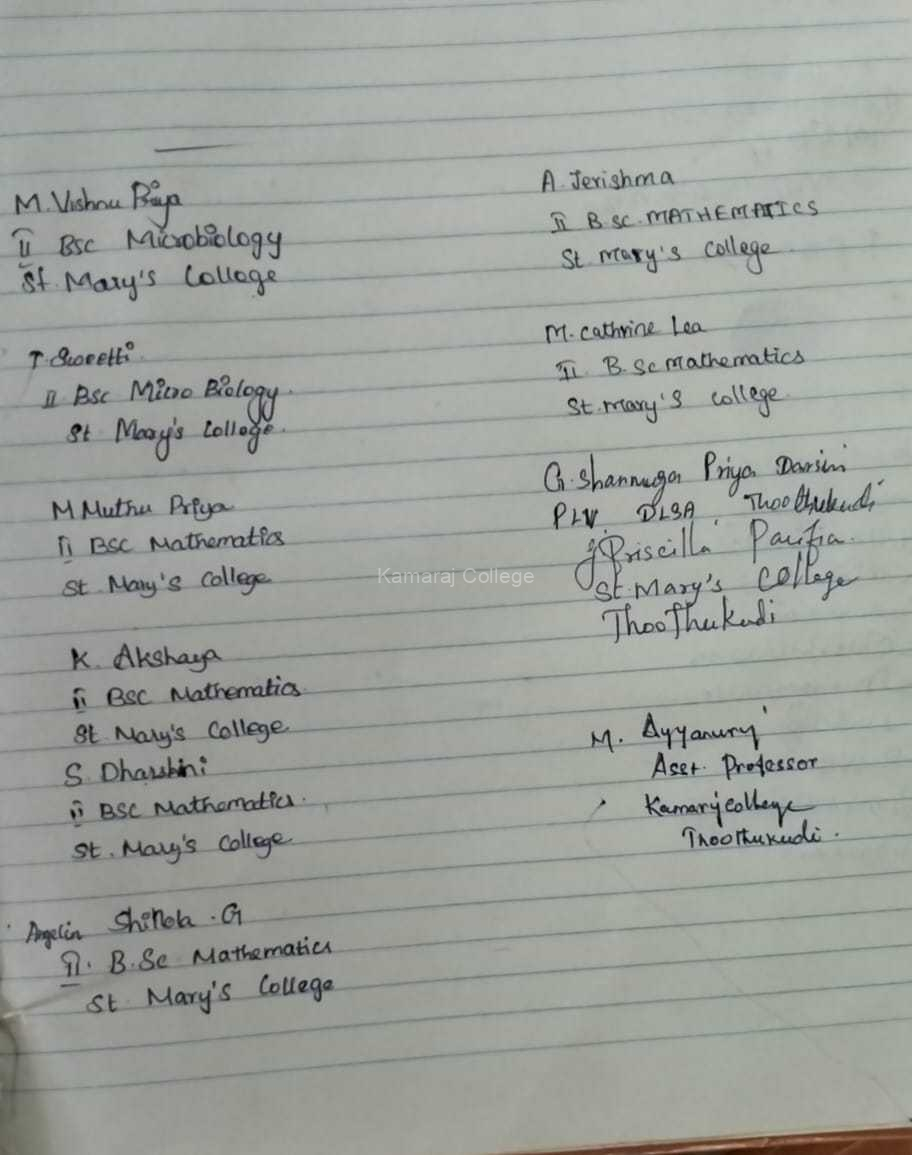 M. Vishnu Priya
II BSc Microbiology
St. Mary's College
T. Sweetti
II BSc Micro Biology.
St Mary's College.
M Muthu Priya
II BSC Mathematics
St. Mary's College
K. Akshaya
II BSC Mathematics.
St. Mary's College
S. Dharshini
II BSC Mathematics.
St. Mary's College
Angelin Shibola . G
II. B.Sc Mathematics
St Mary's College
A. Jerishma
II B.SC. MATHEMATICS
St. Mary's College.
M. Cathrine Lea
II. B.Sc Mathematics
St. Mary's College
G. Shanmuga Priya Darsini
PLV. DLSA Thoothukudi
J. Priscilla Parifia.
St. Mary's College
Thoothukudi
M.
Asst. Professor
Kamaraj College
Thoothukudi.
Kamaraj College